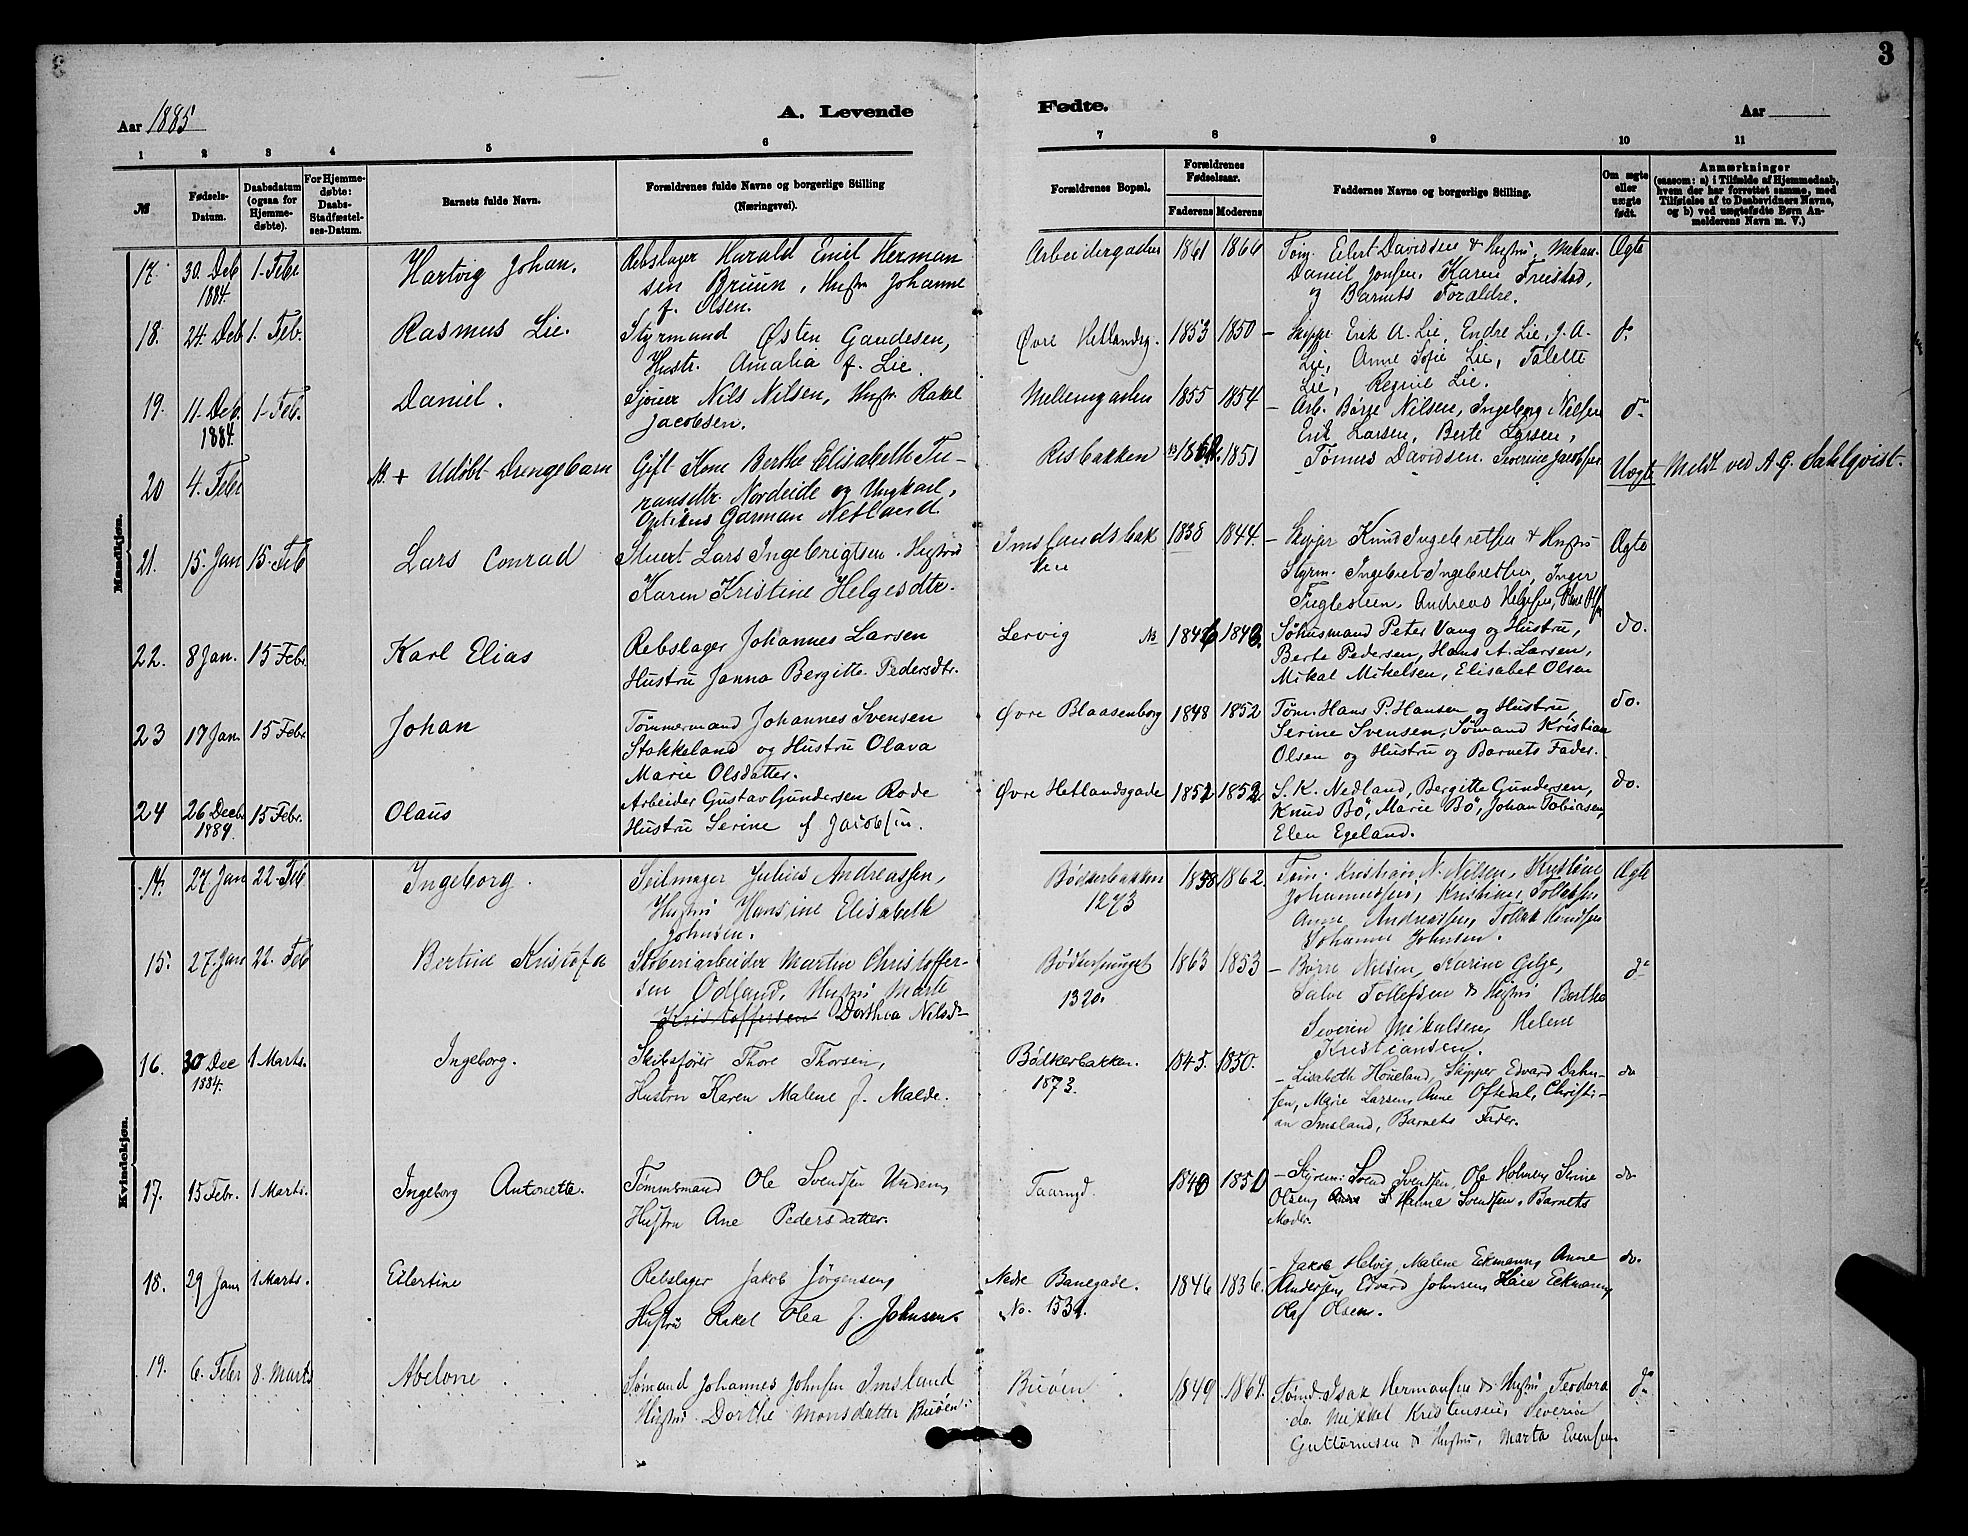 3
Aar 1885
A. Levende
Fødte.
Aar
1 2 3 4 5 6 7 8 9 10 11
№
Fødsels-
Datum.
Daabsdatum
(ogsaa for
Hjemme-
døbte).
For Hjemme-
døbte:
Daabs-
Stadfæstel-
ses-Datum.
Barnets fulde Navn.
Forældrenes fulde Navne og borgerlige Stilling
(Næringsvei).
Forældrenes Bopæl.
Forældrenes
Fødselsaar.
Faderens Moderens
Faddernes Navne og borgerlige Stilling.
Om ægte
eller
uægte
født.
Anmærkninger
(saasom: a) i Tilfælde af Hjemmedaab,
hvem der har forrettet samme, med
Tilføielse af to Daabsvidners Navne,
og b) ved uægtefødte Børn An-
melderens Navn m. V.)
Mandkjøn.
17. 30. Deb 1884. 1. Febr Hartvig Johan.
Rebslager Harald Emil Herman
sen Bruun, Hustr Johanne
f. Olsen.
Arbeidergaden 1861 1866
Tøm. Eilert Davidsen & Hustru, Mekan.
Daniel Jonsen, Karen
og Barnets Forældre.
Ægte
18. 24. Deb 1. Feb. Rasmus Lie.
Styrmand Østen Gaudesen,
Hustr. Amalia f. Lie.
Øvre Hetlandsg. 1853 1850
Skipp. Erik A. Lie, Endre Lie, J. A.
Lie, Anne Sofie Lie, Talette
Lie, Regine Lie.
do
19. 11. Deb. 1884. 1. Feb. Daniel.
Sjøuer Nils Nilsen, Hustr. Rakel
Jacobsen.
Mellemgaden 1855 1854
Arb. Børre Nilsen, Ingeborg Nilsen
Erik Larsen, Berte Larsen,
Tønnes Davidsen. Severine Jacobsen
do
20 4. Febr + Udøbt Drengebarn
Gift Kone Berthe Elisabeth Tu-
ransdtr. Nordeide og Ungkarl,
Optikus Garman Netland
Risbakken 1851
Uægte Meldt ved A. G. Sahlqvist.
21. 15. Jan 15. Feb Lars Conrad
Stuert Lars Ingebrigtsen. Hustru
Karen Kristine Helgesdtr.
Imslandsbak
ken
1838 1844.
Skipper Knud Ingebretsen & Hustru
Styrm. Ingebret Ingebretsen, Inger
Fuglesteen, Andreas Helgesen,
Ægte
22. 8 Jan. 15 Febr. Karl Elias
Rebslager Johannes Larsen
Hustru Janna Bergitte Pedersdtr.
Lervig 1846
Søhusmand Peter Vang og Hustru,
Berte Pedersen, Hans A. Larsen,
Mikal Mikelsen, Elisabet Olsen
do.
23 17 Jan. 15 Febr. Johan
Tømmermand Johannes Svensen
Stokkeland og Hustru Olava
Marie Olsdatter.
Øvre Blaasenborg 1848 1852
Tøm. Hans P. Hansen og Hustru,
Serine Svensen, Sømand Kristian
Olsen og Hustru og Barnets Fader.
do.
24 26 Decbr 1884. 15 Febr. Olaus
Arbeider Gustav Gundersen Rode
Hustru Serine f Jacobsen.
Øvre Hetlandsgade 1852 1852
S. K. Nedland, Bergitte Gundersen,
Knud Bö, Marie Bö, Johan Tobiasen,
Elen Egeland.
do.
Kvindekjøn.
14. 27 Jan 22. Feb Ingeborg.
Seilmager Julius Andreassen,
Hustru Hansine Elisabeth
Johnsen.
Bødkerbakken
1273
1858 1862.
Tøm. Kristian N. Nilsen, Kristine
Johannessen, Kristine Tollefsen
Anne Andreassen, Tollak Knudsen
Johanne Johnsen.
Ægte
15. 27 Jan 22. Feb Bertine Kristofa
Skoberiarbeider Martin Christoffer-
sen Odland, Hustru Marte
Kristoffersen Dorthea Nilsd-
1320.
1863 1853
Børre Nilsen, Karine Gilje,
Salve Tollefsen & Hustru Berthe
Severin Mikalsen, Helene
Kristiansen.
do
16. 30 Dec 1884. 1 Marts. Ingeborg.
Skibsfører Thore Thorsen,
Hustru Karen Malene f. Malde.
Bødkerbakken.
1873.
1845. 1850.
Lisabeth Houeland, Skipper Edvard Dahn-
sen, Marie Larsen, Anne Oftedal, Christi-
an Imsland, Barnets Fader.
do
17. 15 Febr. 1 Marts. Ingeborg Antonette.
Tømmsmand Ole Svendsen Unden,
Hustru Ane Pedersdatter.
Taarngd. 1840 1850
Styrm. Svend Svendsen, Ole Holmen, Serine
Olsen, Hanne Svendsen, Barnets
Moder.
do
18. 29 Jan 1 Marts. Eilertine
Rebslager Jakob Jørgensen,
Hustru Rakel Olea f. Johnsen.
Nedre Banegade.
No. 1531.
1846 1836.
Jakob Helvig, Malene Eckmann, Anne
Andersen, Edvard Johnsen, Eckmann,
Olaf Olsen.
do.
19. 6. Febr 8. Marts Abelone
Sømand Johannes Johnsen Imsland
Hustru Dorthe Monsdatter Buöen.
Buöen. 1849 1864.
Tømd. Isak Hermansen & Hustru Teodora
do. Mikkel Kristensen, Severin
Guttormsen & Hustru, Marta Evensen
do